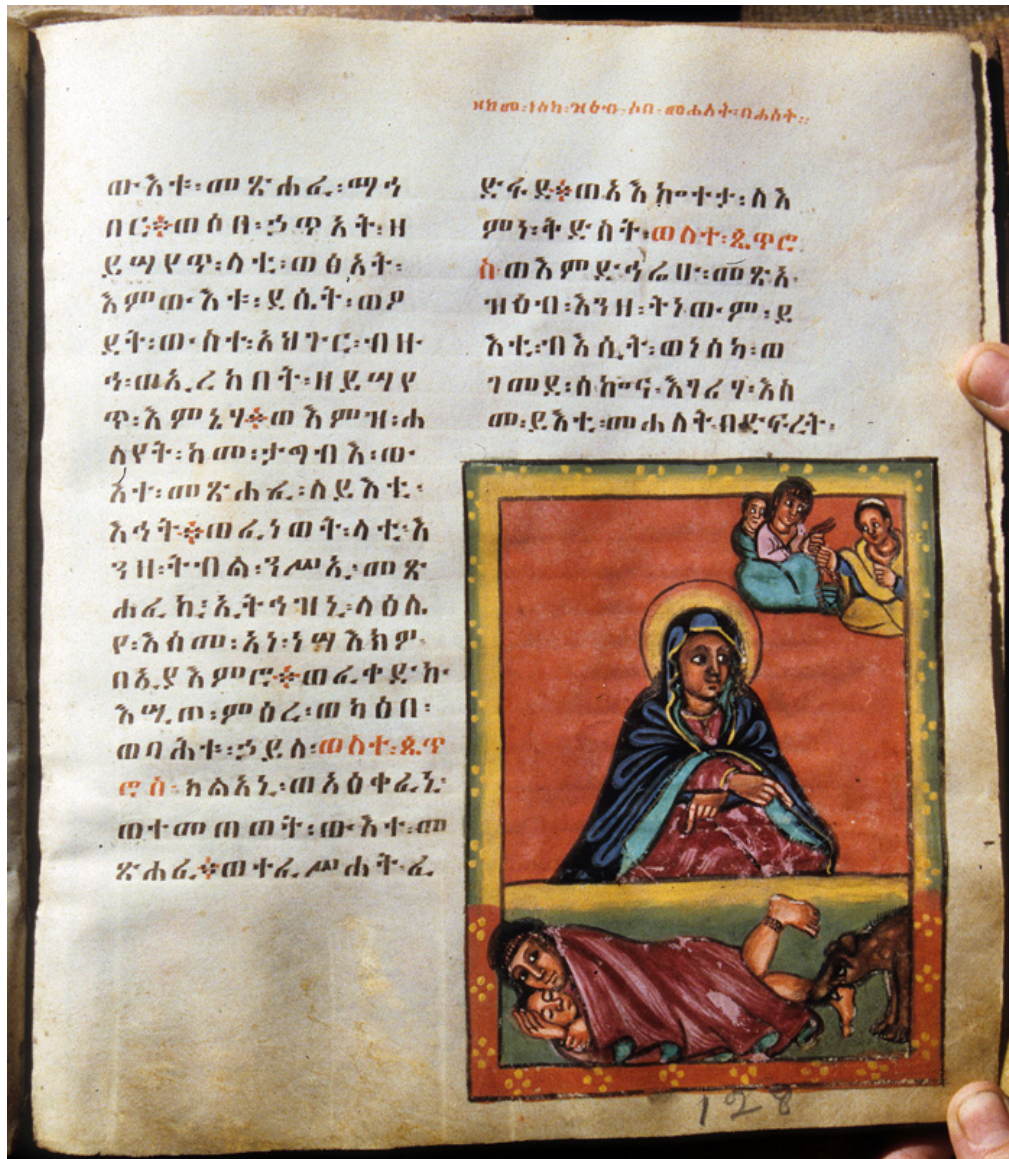 ዘከመ፡ነሰከ፡ዝዕብ፡ሶበ፡መሐለት፡በሐሰት፡፡
ውእቱ፡መጽሐፈ፡ማኅ
በር፨ወሶበ፡ኃጥአት፡ዘ
ይሣየጥ፡ላቲ፡ወፅአት፡
እምውእቱ፡ደሴት፡ወዖ
ደት፡ውስተ፡አህጉር፡ብዙ
ኅ፡ወኢረከበት፡ዘይሣየ
ጥ፡እምኔሃ፨ወእምዝ፡ሐ
ለየት፡ከመ፡ታግብእ፡ው
እተ፡መጽሐፈ፡ለይእቲ፡
እኅት፨ወፈነወት፡ላቲ፡እ
ንዘ፡ትብል፡ንሥኢ፡መጽ
ሐፈኪ፡ኢትኅዝኒ፡ላዕሌ
የ፡እስመ፡አነ፡ነሣእክዎ
በኢያእምሮ፨ወፈቀድኩ
እሢጦ፡ምዕረ፡ወካዕበ፡
ወባሕቱ፡ኃይለ፡ወለተ፡ጴጥ
ሮስ፡ከልአኒ፡ወአዕቀፈኒ፡
ወተመጠወት፡ውእተ፡መ
ጽሐፈ፨ወተፈሥሐት፡ፈ
ድፋደ፨ወአእኰተታ፡ለእ
ምነ፡ቅድስት፡ወለተ፡ጴጥሮ
ስ፡ወእምድኅሬሁ፡መጽአ
ዝዕብ፡እንዘ፡ትነውም፡ይ
እቲ፡ብእሲት፡ወነሰካ፡ወ
ገመደ፡ሰኰና፡እግሪሃ፡እስ
መ፡ይእቲ፡መሐለት፡በድፍረት፡
128